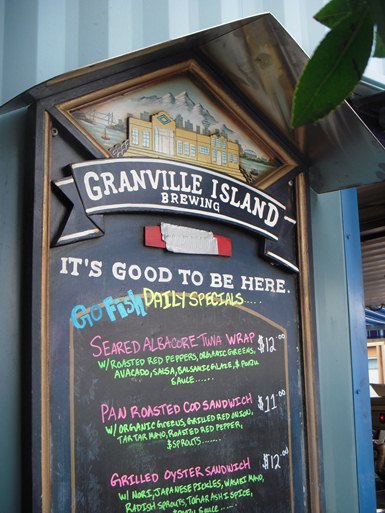 GRANVILLE ISLAND
BREWING
IT'S GOOD TO BE HERE.
Go Fish DAILY SPECIALS.....
SEARED ALBACORE TUNA WRAP $12.00
W/ROASTED RED PEPPERS, ORGANIC GREENS,
AVACADO, SALSA, BALSAMIC GLAZE, & PONZU
SAUCE......
PAN ROASTED COD SANDWICH $11.00
W/ORGANIC GREENS, GRILLED RED ONION,
TARTAR MAYO, ROASTED RED PEPPER,
& SPROUTS.......
GRILLED OYSTER SANDWICH $12.00
W/ NORI, JAPANESE PICKLES, WASABI MAYO,
RADISH SPROUTS, TOGARASHI SPICE,
& PONZU SAUCE....